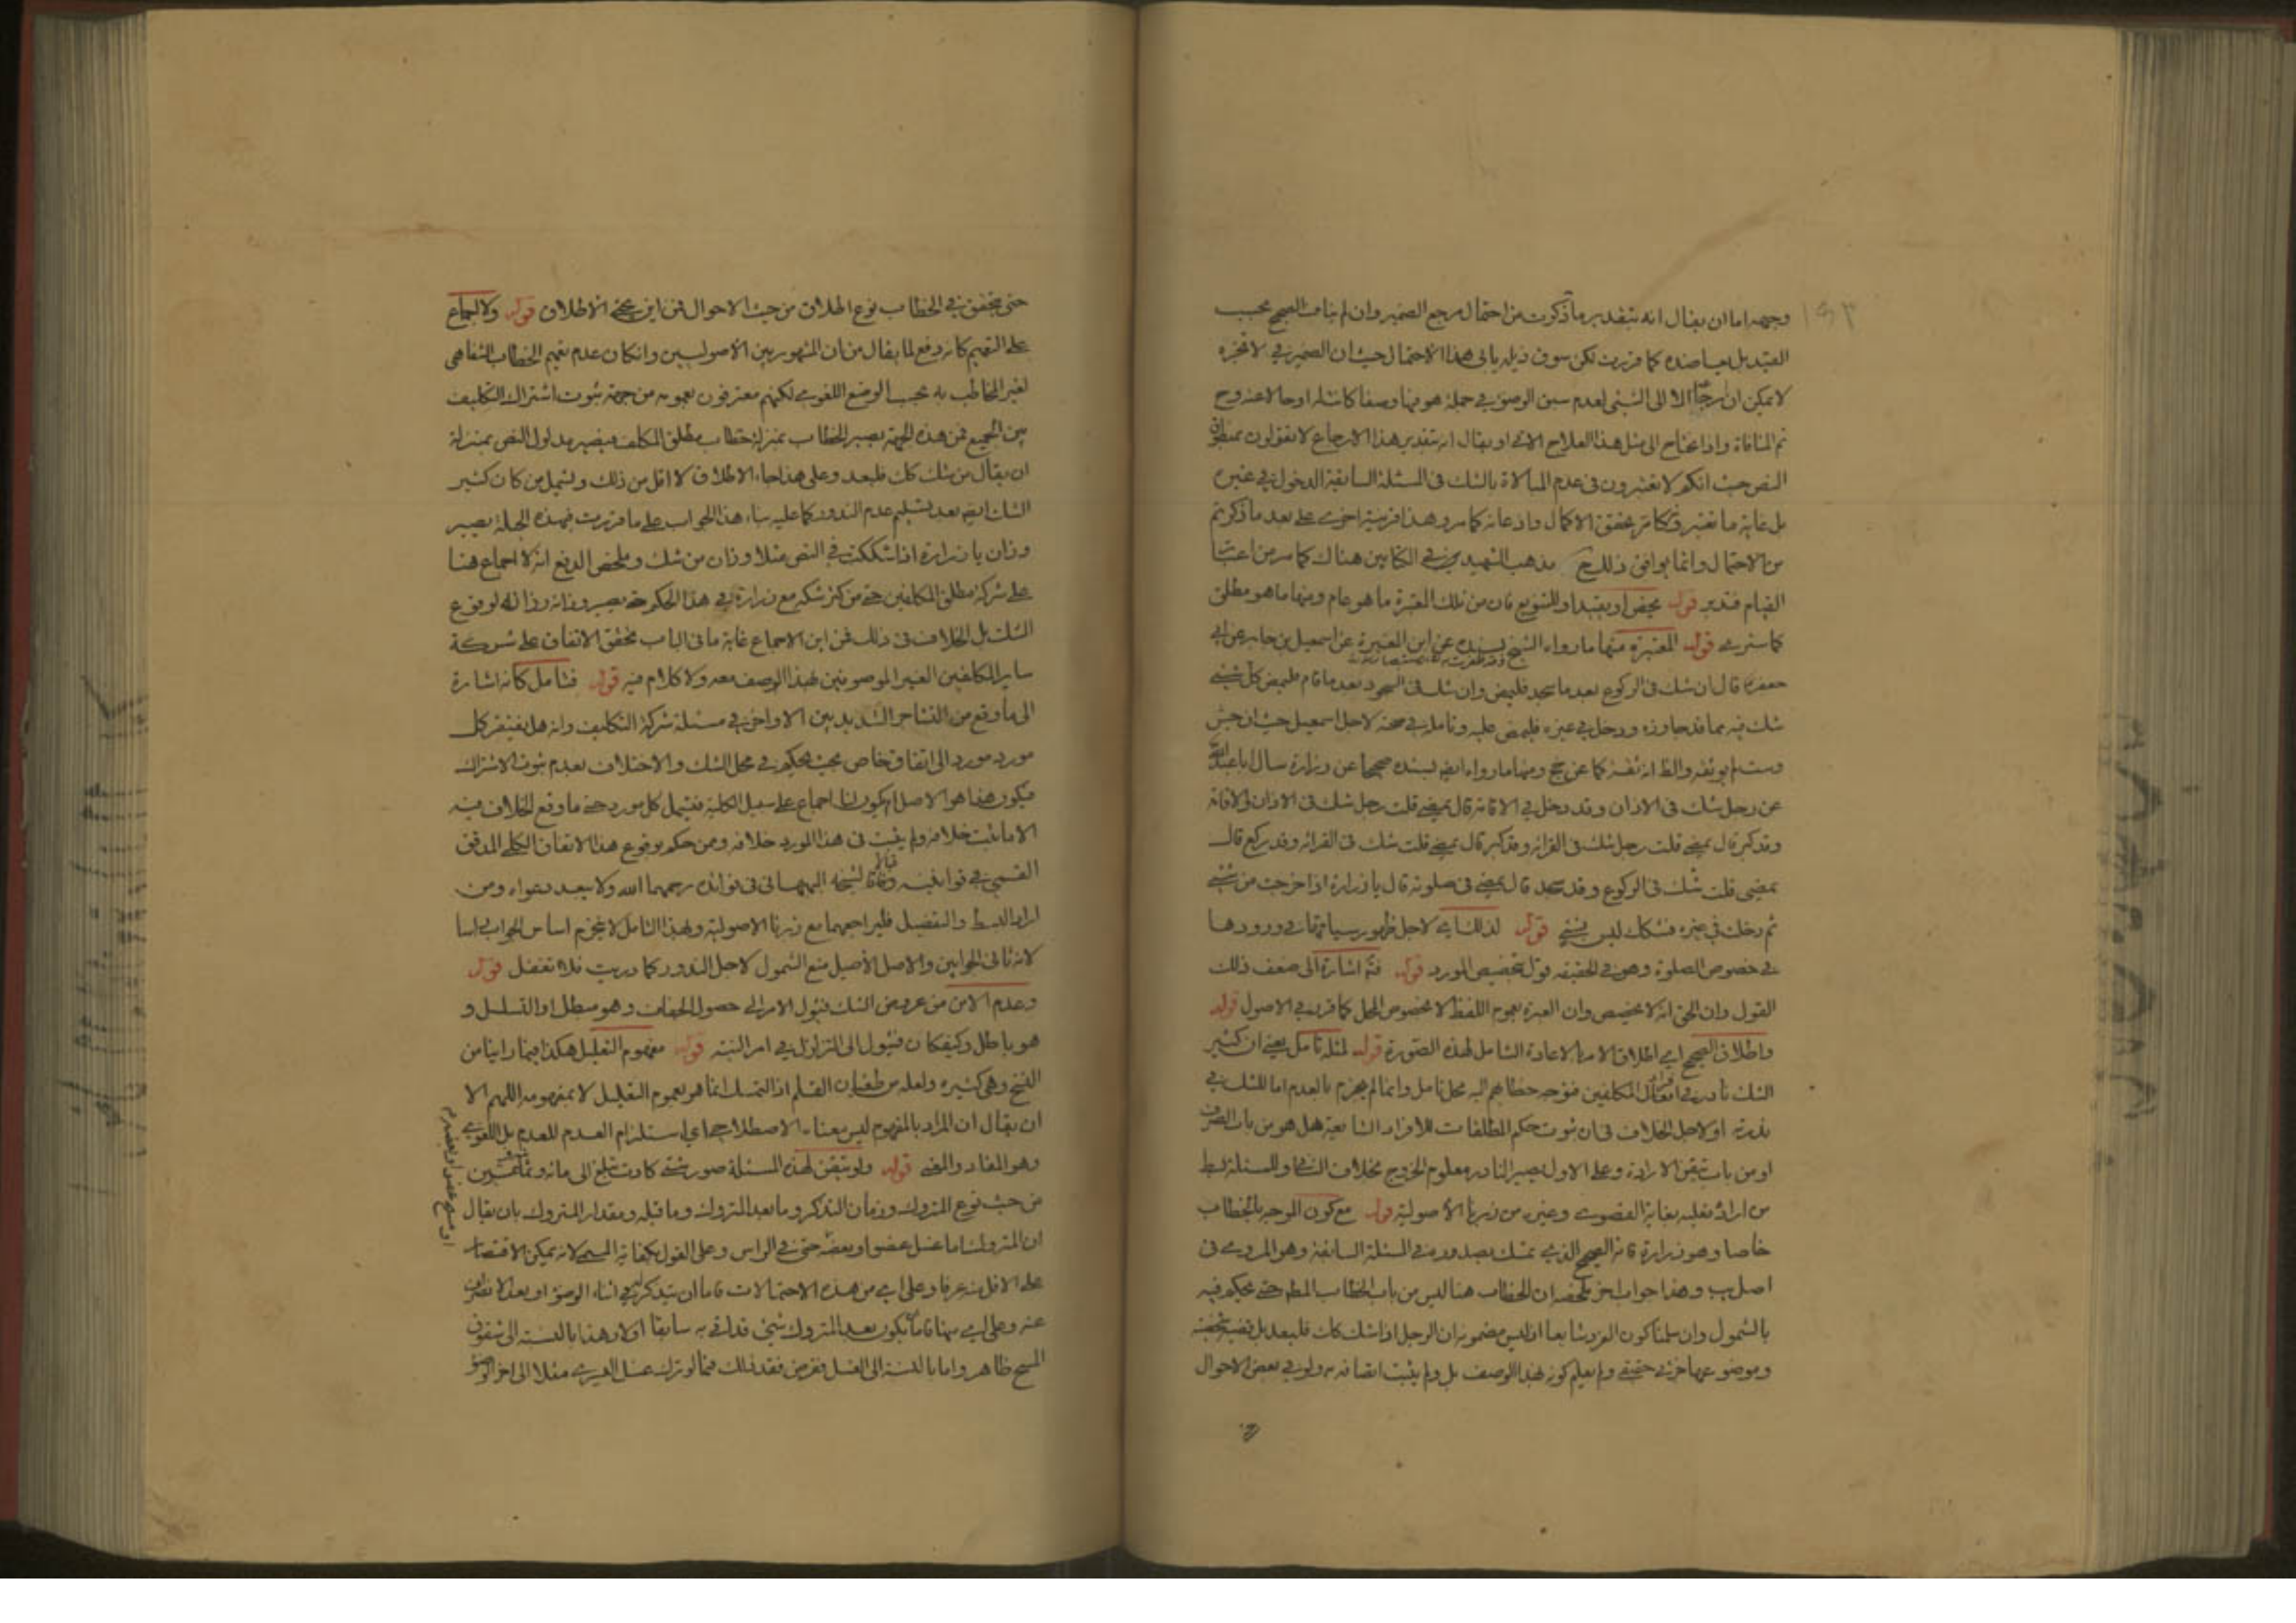 وجهه اما ان يقال انه بتقدير ما ذكرت من احتمال مرجع الضمير وان لم يناف الصحيح بحسب
القيد بل يعاضده كما قررت لكن سوق ذيله يابى هذا الاحتمال حيث ان الضمير في لا تجزه
لا يمكن ان الا الى الشئ لعدم سبق الوضوء في جملة هو فيها وصفا كانت له او حالا عنه وح
تم المنافاة واذا نحتاج الى مثل هذا العلاج الاتى او يقال انه بتقدير هذا الارجاع لا تقولون بمنطوق
النص حيث انكم لا تعتبرون فى عدم المبالاة بالشك فى المسئلة السابقة الدخول في غيره
بل غاية ما تعتبرونه كما مر تحقق الاكمال واذعانه كما مر وهذا قرينة اخرى على بعد ما ذكرتم
من الاحتمال وانما يوافق ذلك مذهب الشهيد في الكتابين هناك كما مر من اعتبار
القيام فتدبر قوله يخص او يقيد او للتنويع فان من تلك المعتبرة ما هو عام ومنها ما هو مطلق
كما سترى قوله المعتبرة منها ما رواه الشيخ بسنده عن ابن المغيرة عن اسمعيل بن جابر عن ابي
جعفر قال ان شك فى الركوع بعد ما سجد فليمض وان شك فى السجود بعد ما قام فليمض كل شئ
شك فيه مما قد جاوزه ودخل في غيره فليمض عليه وتامل في صحته لاجل اسمعيل حيث ان
لم يوثقه والظ انه ثقة كما عن ومنها ما رواه ايض بسنده صحيحا عن زرارة سال ابا عبد الله
عن رجل شك فى الاذان وقد دخل في الاقامة قال يمضي قلت رجل شك فى الاذان والاقامة
وقد كبر قال يمضي قلت رجل شك فى القرائة وقد كبر قال يمضي قلت شك فى القرائة وقد ركع قال
يمضى قلت شك فى الركوع وقد سجد قال يمضي فى صلوته قال يا زرارة اذا خرجت من شئ
ثم دخلت في غيره فشكك ليس بشئ قوله لذلك اي لاجل ظهور سياقها في ورودها
في خصوص الصلوة وهو في الحقيقة قول بتخصيص المورد قوله فتم اشارة الى ضعف ذلك
القول وان الحق انه لا تخصيص وان العبرة بعموم اللفظ لا بخصوص المحل كما قرر في الاصول قوله
واطلاق الصحيح اي اطلاق الامر بالاعادة الشامل لهذه الصورة قوله لمثله تامل يعني ان كثير
الشك نادر في المكلفين فتوجه خطابهم اليه محل تامل وانما لم يجزم بالعدم اما للشك في
ندرته او لاجل الخلاف فى ان ثبوت حكم المطلقات للافراد الشايعة هل هو من باب الصرف
او من باب تيقن الارادة وعلى الاول يصير النادر معلوم الخروج بخلاف الثانى وللمسئلة بسط
من اراده فعليه بغاية القصوى وغيره من زبرنا الاصولية قوله مع كون الموجه بالخطاب
خاصا وهو زرارة فانه الصحيح الذي تمسك بصدره في المسئلة السابقة وهو المروي فى
اصل يب وهذا جواب اخر ملخصه ان الخطاب هنا ليس من باب الخطاب المطلق حتى يحكم فيه
بالشمول وان سلمنا كون الفرد شايعا اذ ليس مضمونه ان الرجل اذا شك كك فليعد بل قضية شخصية
وموضوعها جزئي حقيقي ولم يعلم كونه بهذا الوصف بل ولم يثبت اتصافه به ولو في بعض الاحوال
حتى يتحقق في الخطاب نوع اطلاق من حيث الاحوال فمن اين يجئ الاطلاق قوله ولا اجماع
على التعميم كانه دفع لما يقال من ان المشهور بين الاصوليين وان كان عدم تعميم الخطاب الشفاهى
لغير المخاطب به بحسب الوضع اللغوي لكنهم معترفون بعمومه من جهة ثبوت اشتراك التكليف
بين الجميع فمن هذه الجهة يصير الخطاب بمنزلة خطاب مطلق المكلف فيصير مدلول النص بمنزلة
ان يقال من شك كك فليعد وعلى هذا جاء الاطلاق لا اقل من ذلك ويشمل من كان كثير
الشك ايض بعد تسليم عدم الندور كما عليه بناء هذا الجواب على ما قررت فبهذه الجملة يصير
وزان يا زرارة اذا شككت في النص مثلا وزان من شك وملخص الدفع انه لا اجماع هنا
على شركة مطلق المكلفين حتى من كثر شكه مع زرارة في هذا الحكم حتى يصير وزانه وزانه لوقوع
الشك بل الخلاف فى ذلك فمن اين الاجماع غاية ما فى الباب تحقق الاتفاق على شركة
ساير المكلفين الغير الموصوفين بهذا الوصف معه ولا كلام فيه قوله فتامل كانه اشارة
الى ما وقع من التشاجر الشديد بين الاواخر في مسئلة شركة التكليف وانه هل يفتقر كل
مورد مورد الى اتفاق خاص بحيث يحكم في محل الشك والاختلاف بعدم ثبوت الاشتراك
فيكون هذا هو الاصل ام يكون لنا اجماع على سبيل الكلية فيشمل كل مورد حتى ما وقع الخلاف فيه
الا ما ثبت خلافه ولم يثبت فى هذا المورد خلافه وممن حكم بوقوع هذا الاتفاق الكلى المدقق
القمي في قوانينه وفاقا لشيخه البهبهانى فى فوائده رحمهما الله ولا يبعد دعواه ومن
اراد البسط والتفصيل فليراجعهما مع زبرنا الاصولية وبهذا التامل لا ينخرم اساس الجواب اساسا
لانه ثانى الجوابين والاصل الاصيل منع الشمول لاجل الندور كما دريت فلا تغفل قوله
وعدم الامن من عروض الشك فيؤل الامر الى حصول الجفاف وهو مبطل او التسلسل و
هو باطل وكيفكان فيؤل الى التزلزل في امر النية قوله مفهوم التعليل هكذا فيما راينا من
النسخ وهى كثيرة ولعله من طغيان القلم اذ التمسك انما هو بعموم التعليل لا بمفهومه اللهم الا
ان يقال ان المراد بالمفهوم ليس معناه الاصطلاحي اي استلزام العدم للعدم بل اللغوي
وهو المفاد والمعنى قوله ولو تيقن لهذه المسئلة صور شتى كادت تبلغ الى مائة و
من حيث نوع المتروك وزمان التذكر وما بعد المتروك وما قبله ومقدار المتروك بان يقال
ان المتروك اما غسل عضو او بعضه حتى في الراس وعلى القول بكفاية المسح لانه يمكن الاقتصار
على الاقل منه عرفا وعلى اي من هذه الاحتمالات فاما ان يتذكر في اثناء الوضوء او بعد الانصراف
عنه وعلى اي منها فاما يكون بعد المتروك شئ قد اتى به سابقا اولا وهذا بالنسبة الى شقوق
المسح ظاهر واما بالنسبة الى الغسل ففرض فقد ذلك فيما لو ترك غسل اليسرى مثلا الى اخر الوضوء